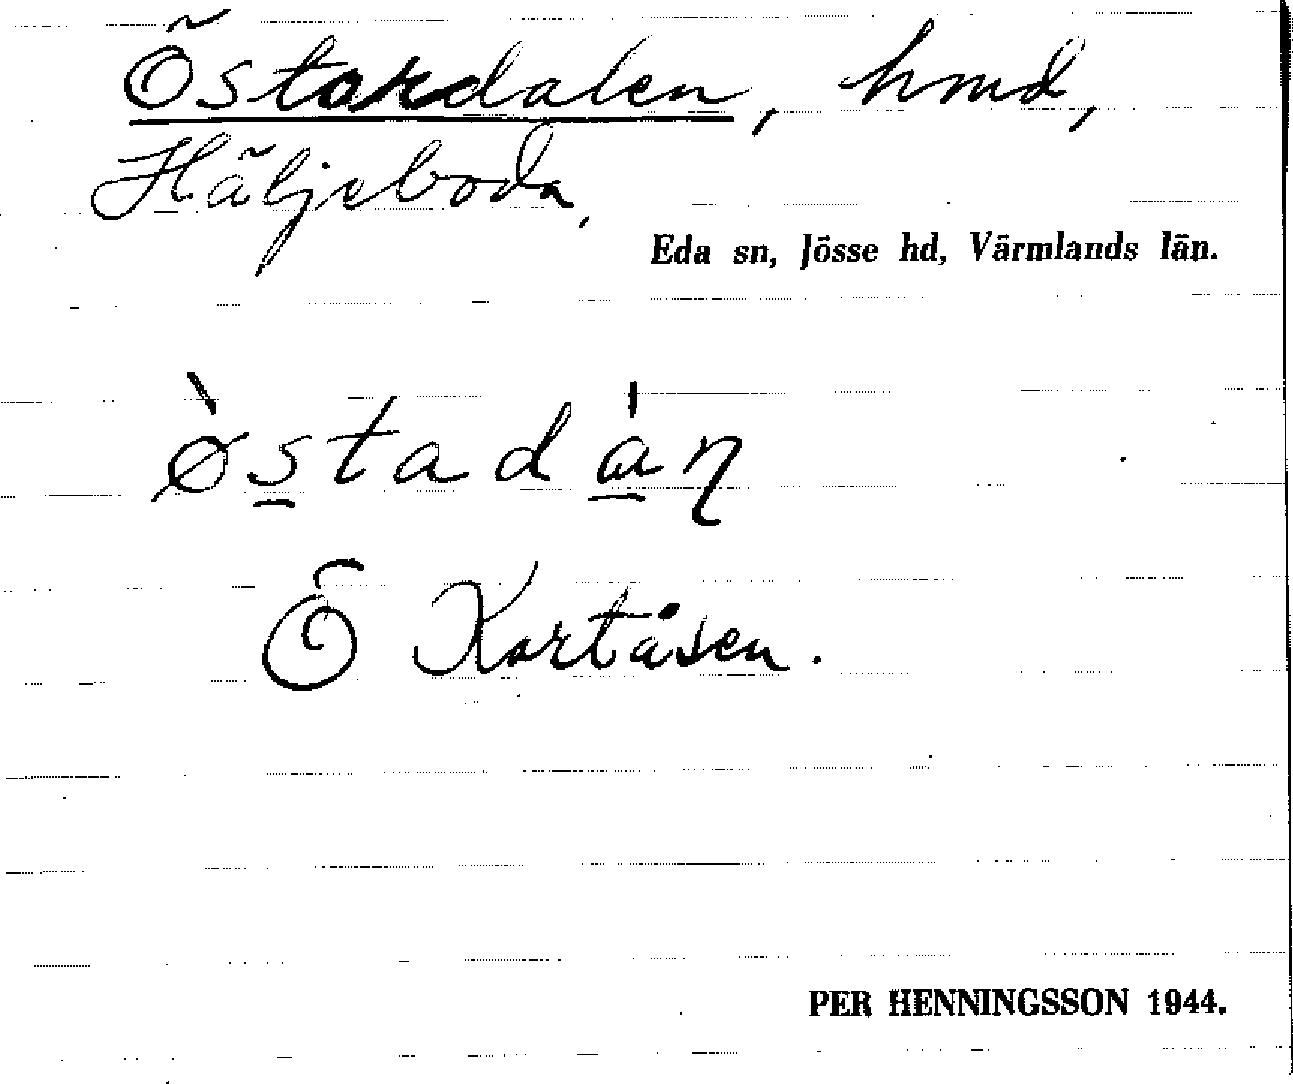 Östardalen, hmd,
Häljeboda,
Eda sn, Jösse hd, Värmlands län.
ø̀s̱tada̱̍ņ
Ö Kortåsen.
PER HENNINGSSON 1944.